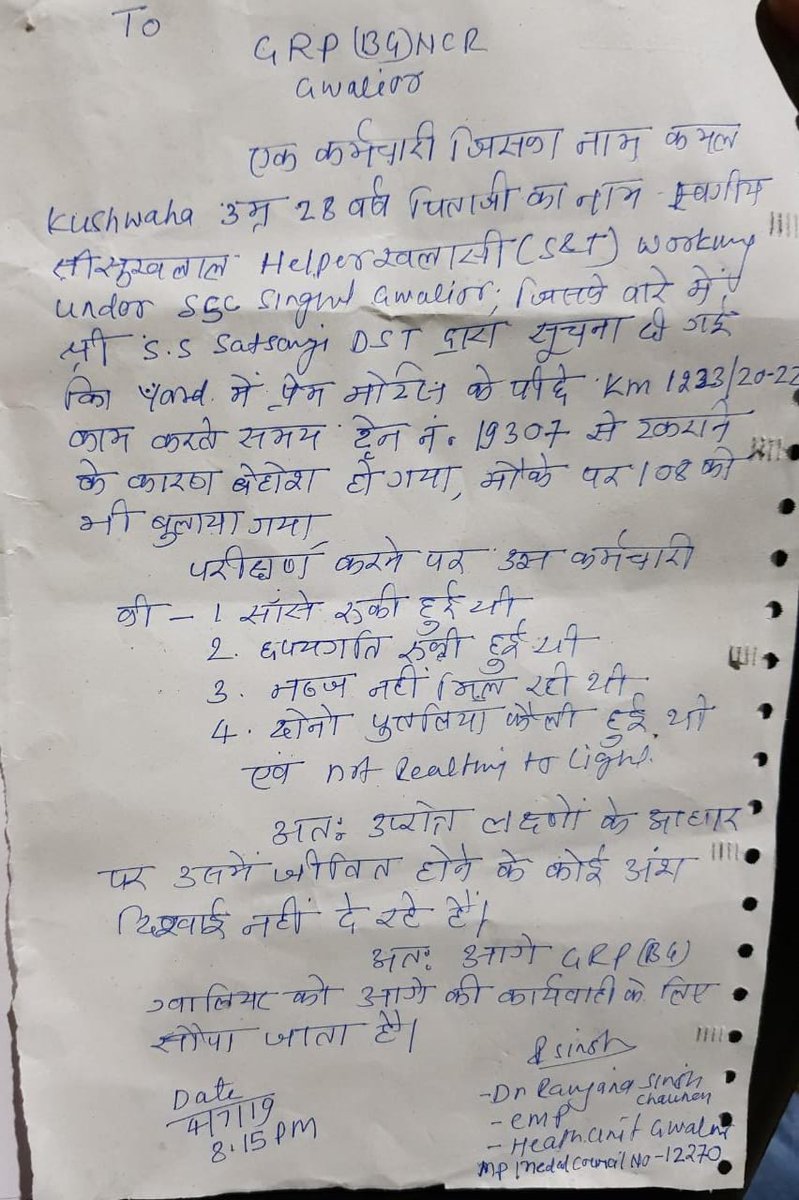 To
GRP (BG) NCR
Gwalior
एक कर्मचारी जिसका नाम कमल
Kushwaha उम्र 28 वर्ष पिताजी का नाम स्वर्गीय
श्री सुखलाल Helper खलासी (S&T) Working
under SSE Singnl Gwalior; जिसके वारे में
श्री S.S Satsangi DST द्वारा सूचना दी गई
कि Yard में प्रेम मोटर्स के पीछे Km 1233/20-22
काम करते समय ट्रेन नं. 19307 से टकराने
के कारण बेहोश हो गया, मौके पर 108 को
भी बुलाया गया
परीक्षण करने पर उस कर्मचारी
की - 1 साँसे रुकी हुई थी
2. हृदयगति रुकी हुई थी
3. नब्ज नहीं मिल रही थी
4. दोनो पुतलिया फैली हुई थी
एवं not Reacting to light.
अतः उपरोक्त लक्षणों के आधार
पर उसमें जीवित होने के कोई अंश
दिखाई नहीं दे रहे हैं।
अतः आगे GRP (BG)
ग्वालियर को आगे की कार्यवाही के लिए
सौंपा जाता है।
RSingh
- Dr Ranjana Singh
Chauhan
- CMP
- Health Unit Gwalior
MP Medal Council No - 12270
Date
4/7/19
8.15 PM